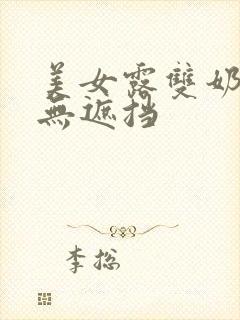 美女露雙奶
無遮挡
李总